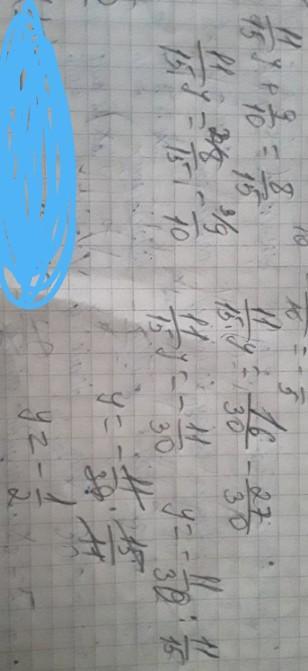 11/15 y + 9/10 = 8/15
11/15 y = 8/15 - 9/10
11/15 y = 16/30 - 27/30
11/15 y = - 11/30
y = - 11/30 : 11/15
y = - 11/30 · 15/11
y = - 1/2